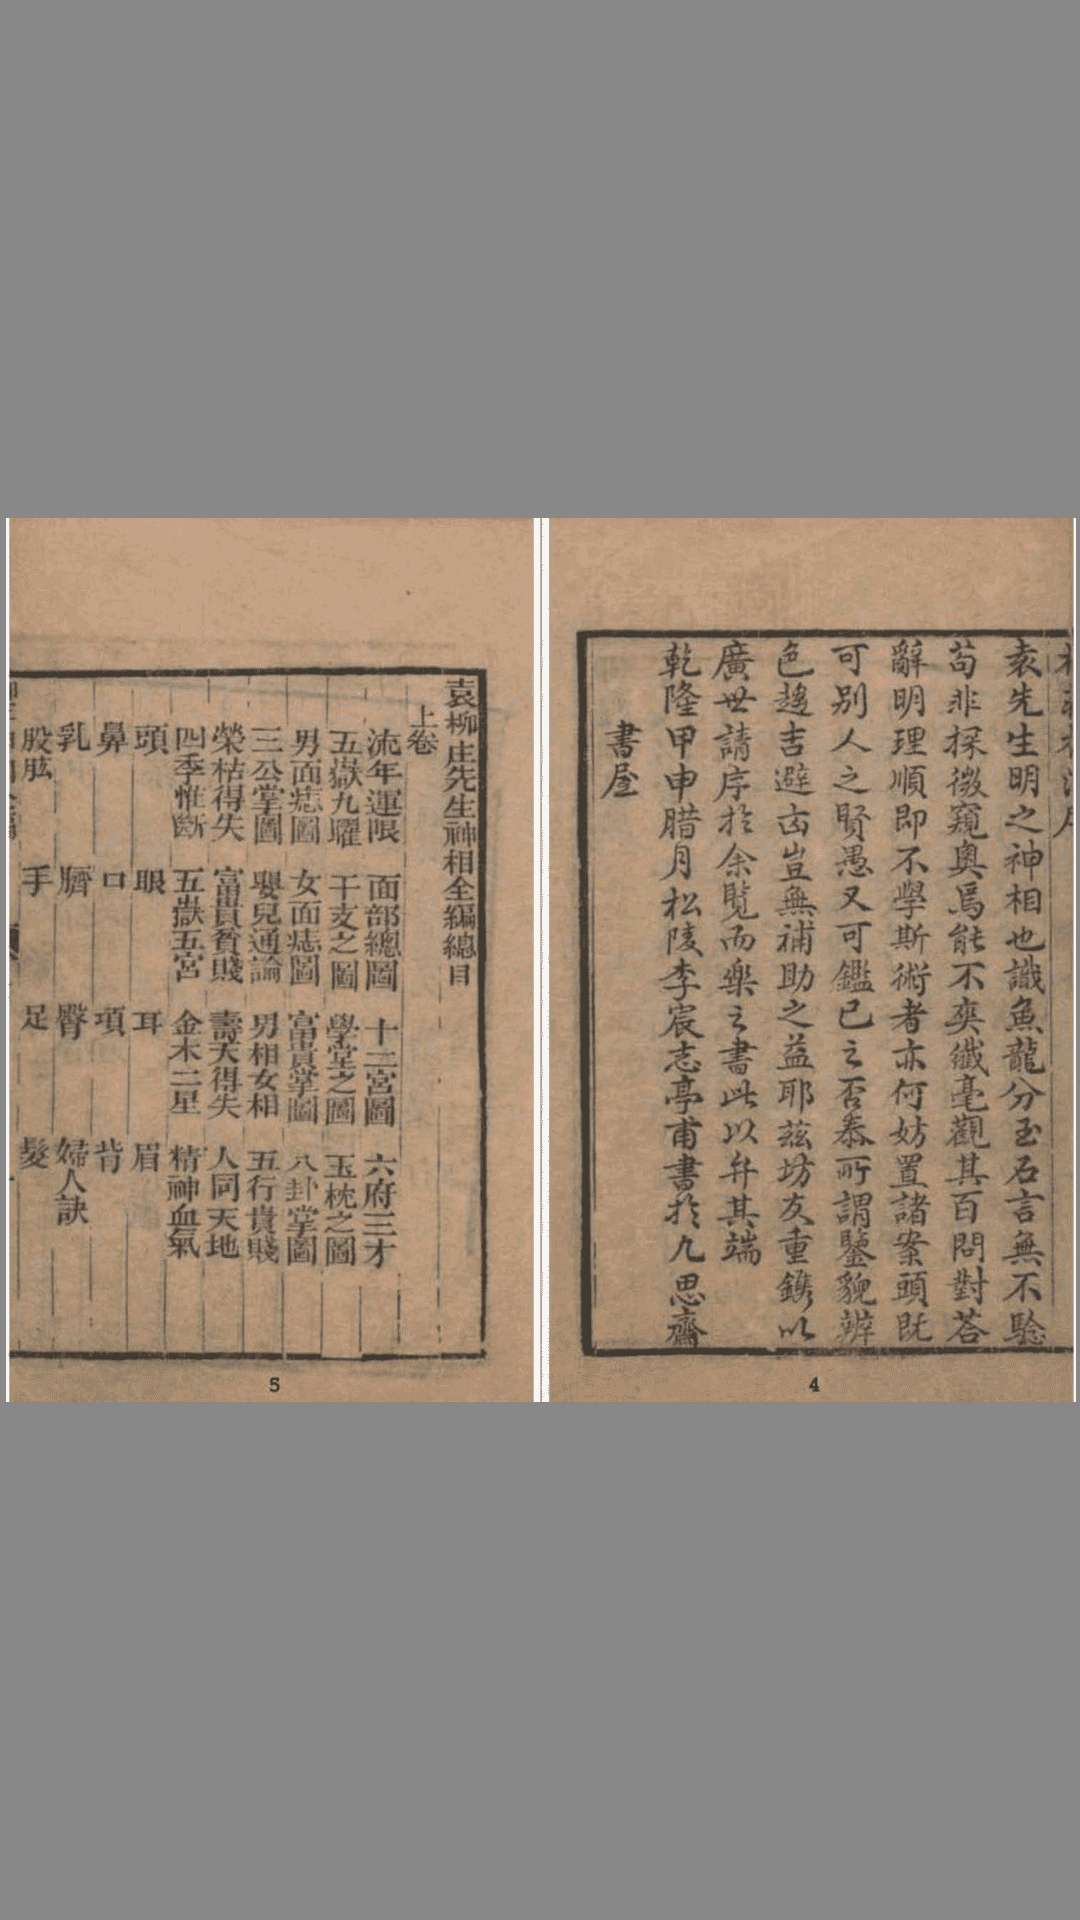 袁先生明之神相也識魚龍分玉石言無不驗
苟非探微窺奧焉能不爽纖毫觀其百問對荅
辭明理順即不學斯術者亦何妨置諸案頭旣
可别人之賢愚又可鑑已之否泰所謂鑒貌辨
色趨吉避凶豈無補助之益耶茲坊友重鐫以
廣世請序於余覧而樂之書此以弁其端
乾隆甲申腊月松陵李宸志亭甫書於九思齋
書屋
4
袁柳庄先生神相全編總目
上卷
流年運限 面部總圖 十二宮圖 六府三才
五嶽九曜 干支之圖 學堂之圖 玉枕之圖
男面痣圖 女面痣圖 富貴掌圖 八卦掌圖
三公掌圖 嬰兒通論 男相女相 五行貴賤
榮枯得失 富貴貧賤 壽夭得失 人同天地
四季惟斷 五嶽五宮 金木二星 精神血氣
頭 眼 耳 眉
鼻 口 項 背
乳 臍 臀 婦人訣
股肱 手 足 髮
5